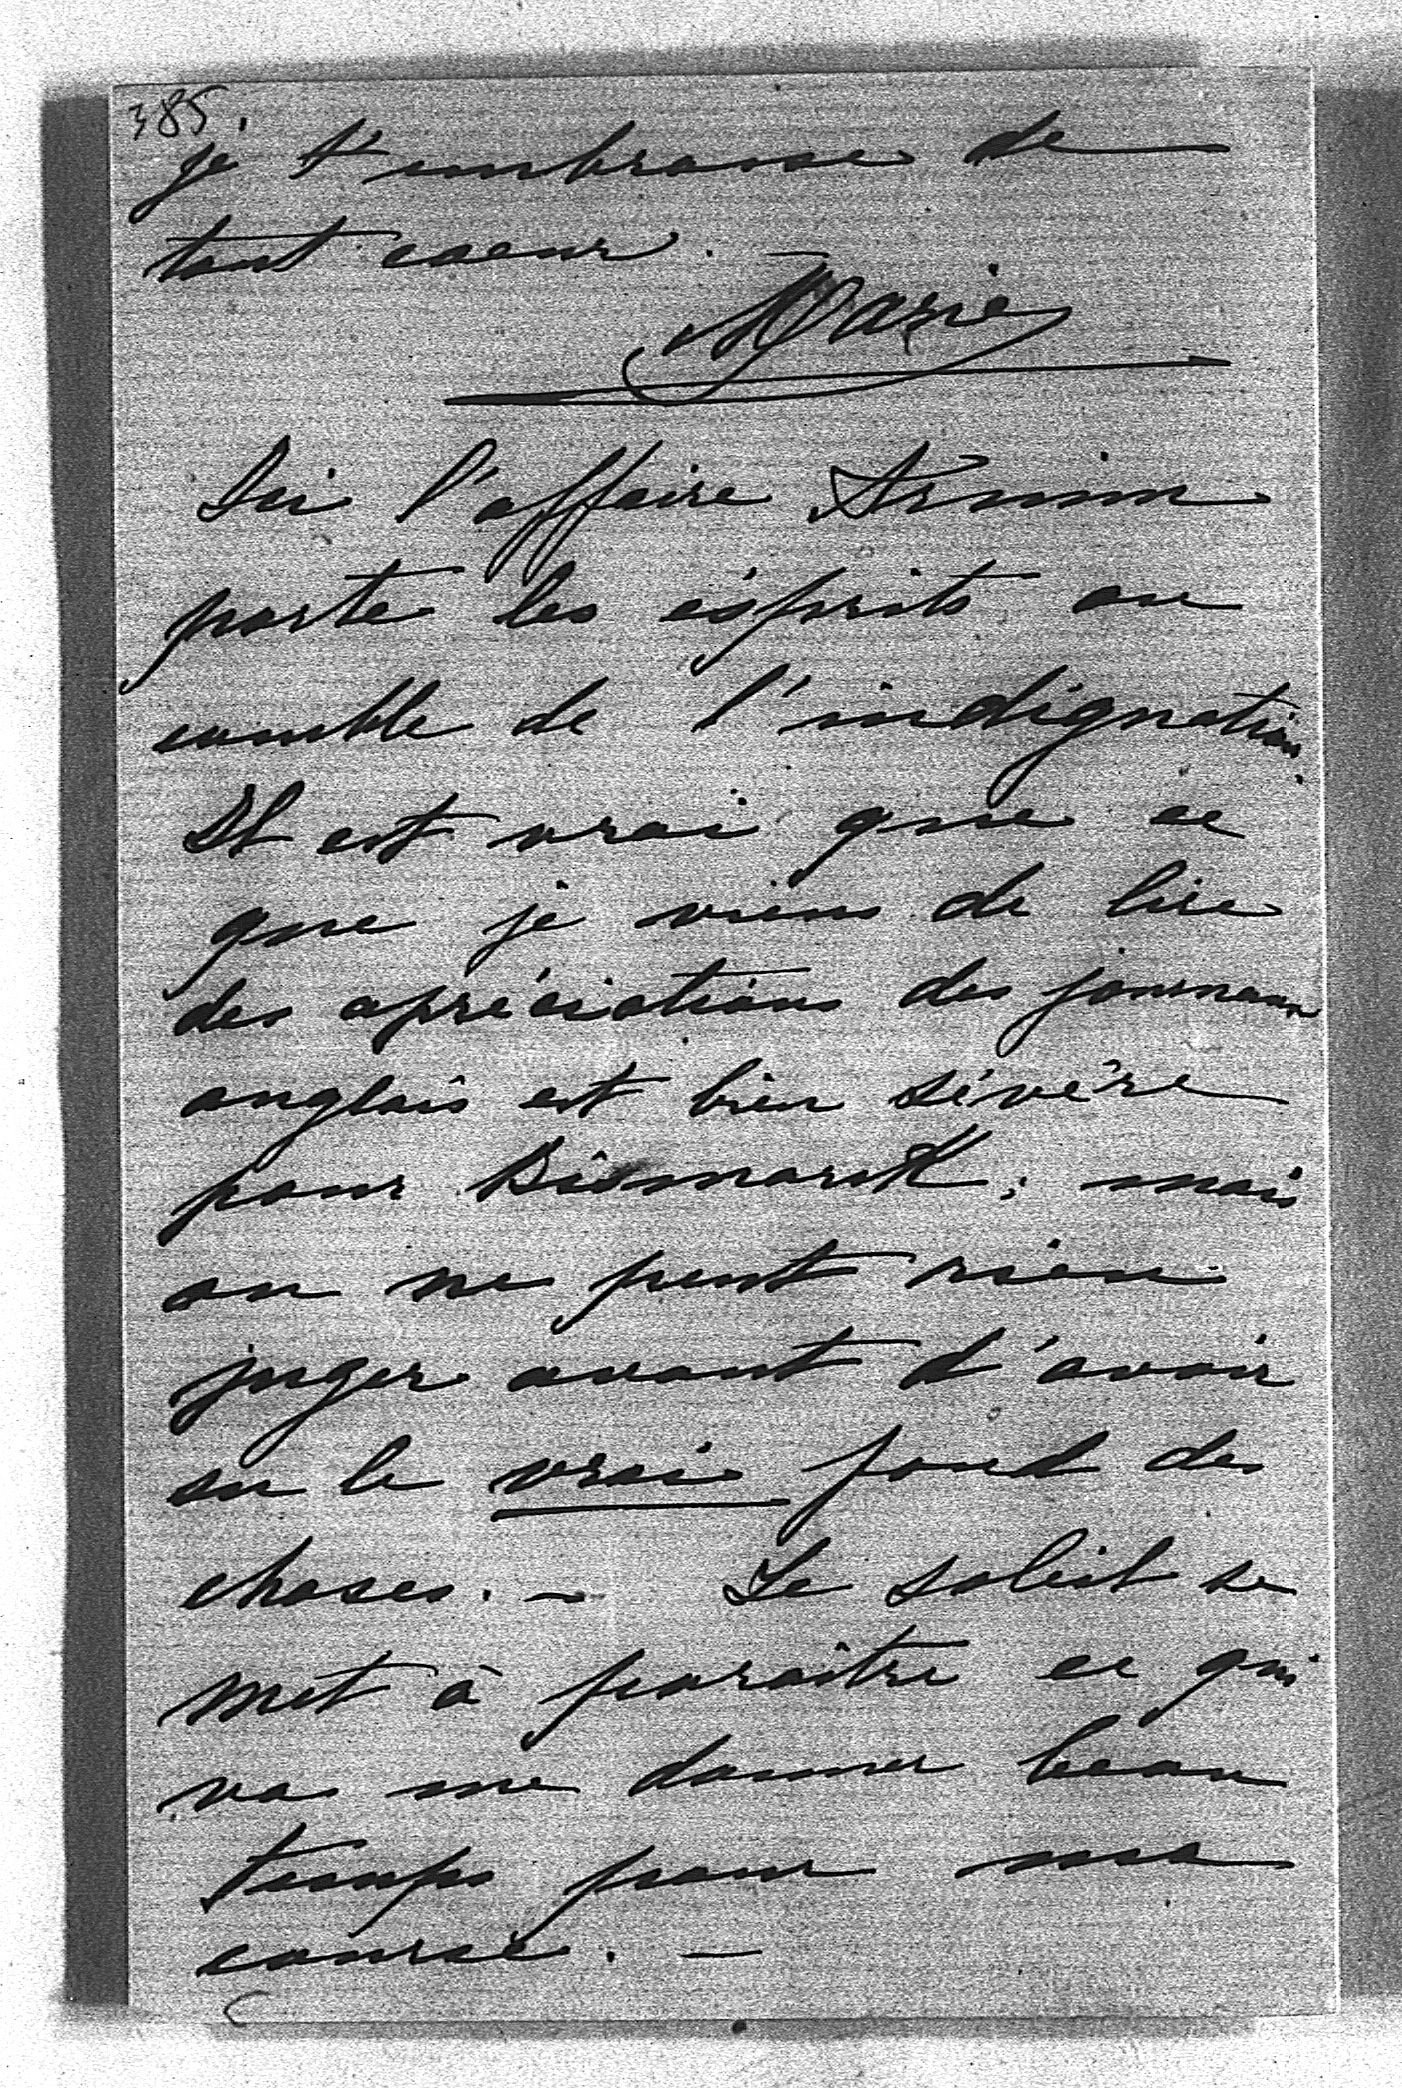 385.
je t'embrasse de
tout coeur. —
Marie
Ici l'affaire Arnim
porte les ésprits au
comble de l'indignation.
Il est vrai que ce
que je viens de lire
des apréciations des journaux
anglais est bien sévère
pour Bismarck; mais
on ne peut rien
juger avant d'avoir
su le vrai fond des
choses. — Le soleil se
met à paraître ce qui
va me donner beau
temps pour ma
course. —